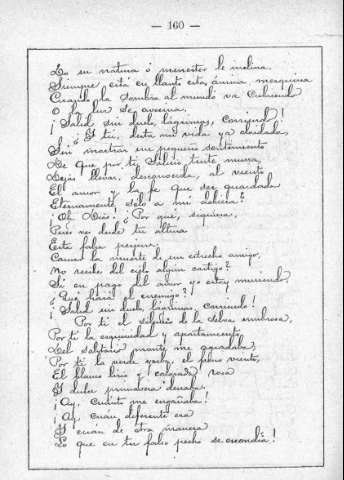 — 160 —
Do su natura ó menester le inclina.
Siempre está en llanto esta ánima mezquina
Cuando la sombra al mundo va cubriendo
O la luz se avecina.
¡Salid sin duelo, lágrimas, corriendo!
¿Y tú, desta mi vida ya olvidada,
Sin mostrar un pequeño sentimiento
De que por ti Salicio triste muera,
Dejas llevar, desconocida, al viento
El amor y la fe que ser guardada
Eternamente sólo a mi debiera?
¡Oh Dios! ¿Por qué, siquiera,
Pues ves desde tu altura
Esta falsa perjura
Causar la muerte de un estrecho amigo,
No recibe del cielo algún castigo?
Si en pago del amor yo estoy muriendo,
¿Qué hará el enemigo?
¡Salid sin duelo, lágrimas, corriendo!
Por ti el silencio de la selva umbrosa,
Por ti la esquividad y apartamiento
Del solitario monte me agradaba;
Por ti la verde yerba, el fresco viento,
El blanco lirio y colorada rosa
Y dulce primavera deseaba.
¡Ay, cuánto me engañaba!
¡Ay, cuán diferente era
Y cuán de otra manera
Lo que en tu falso pecho se escondía!